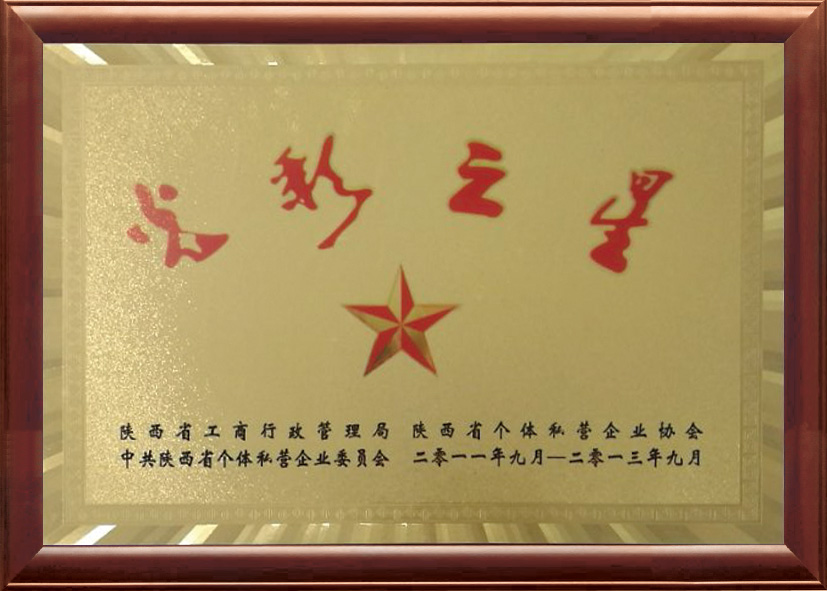 光彩之星
陕西省工商行政管理局 陕西省个体私营企业协会
中共陕西省个体私营企业委员会 二零一一年九月—二零一三年九月